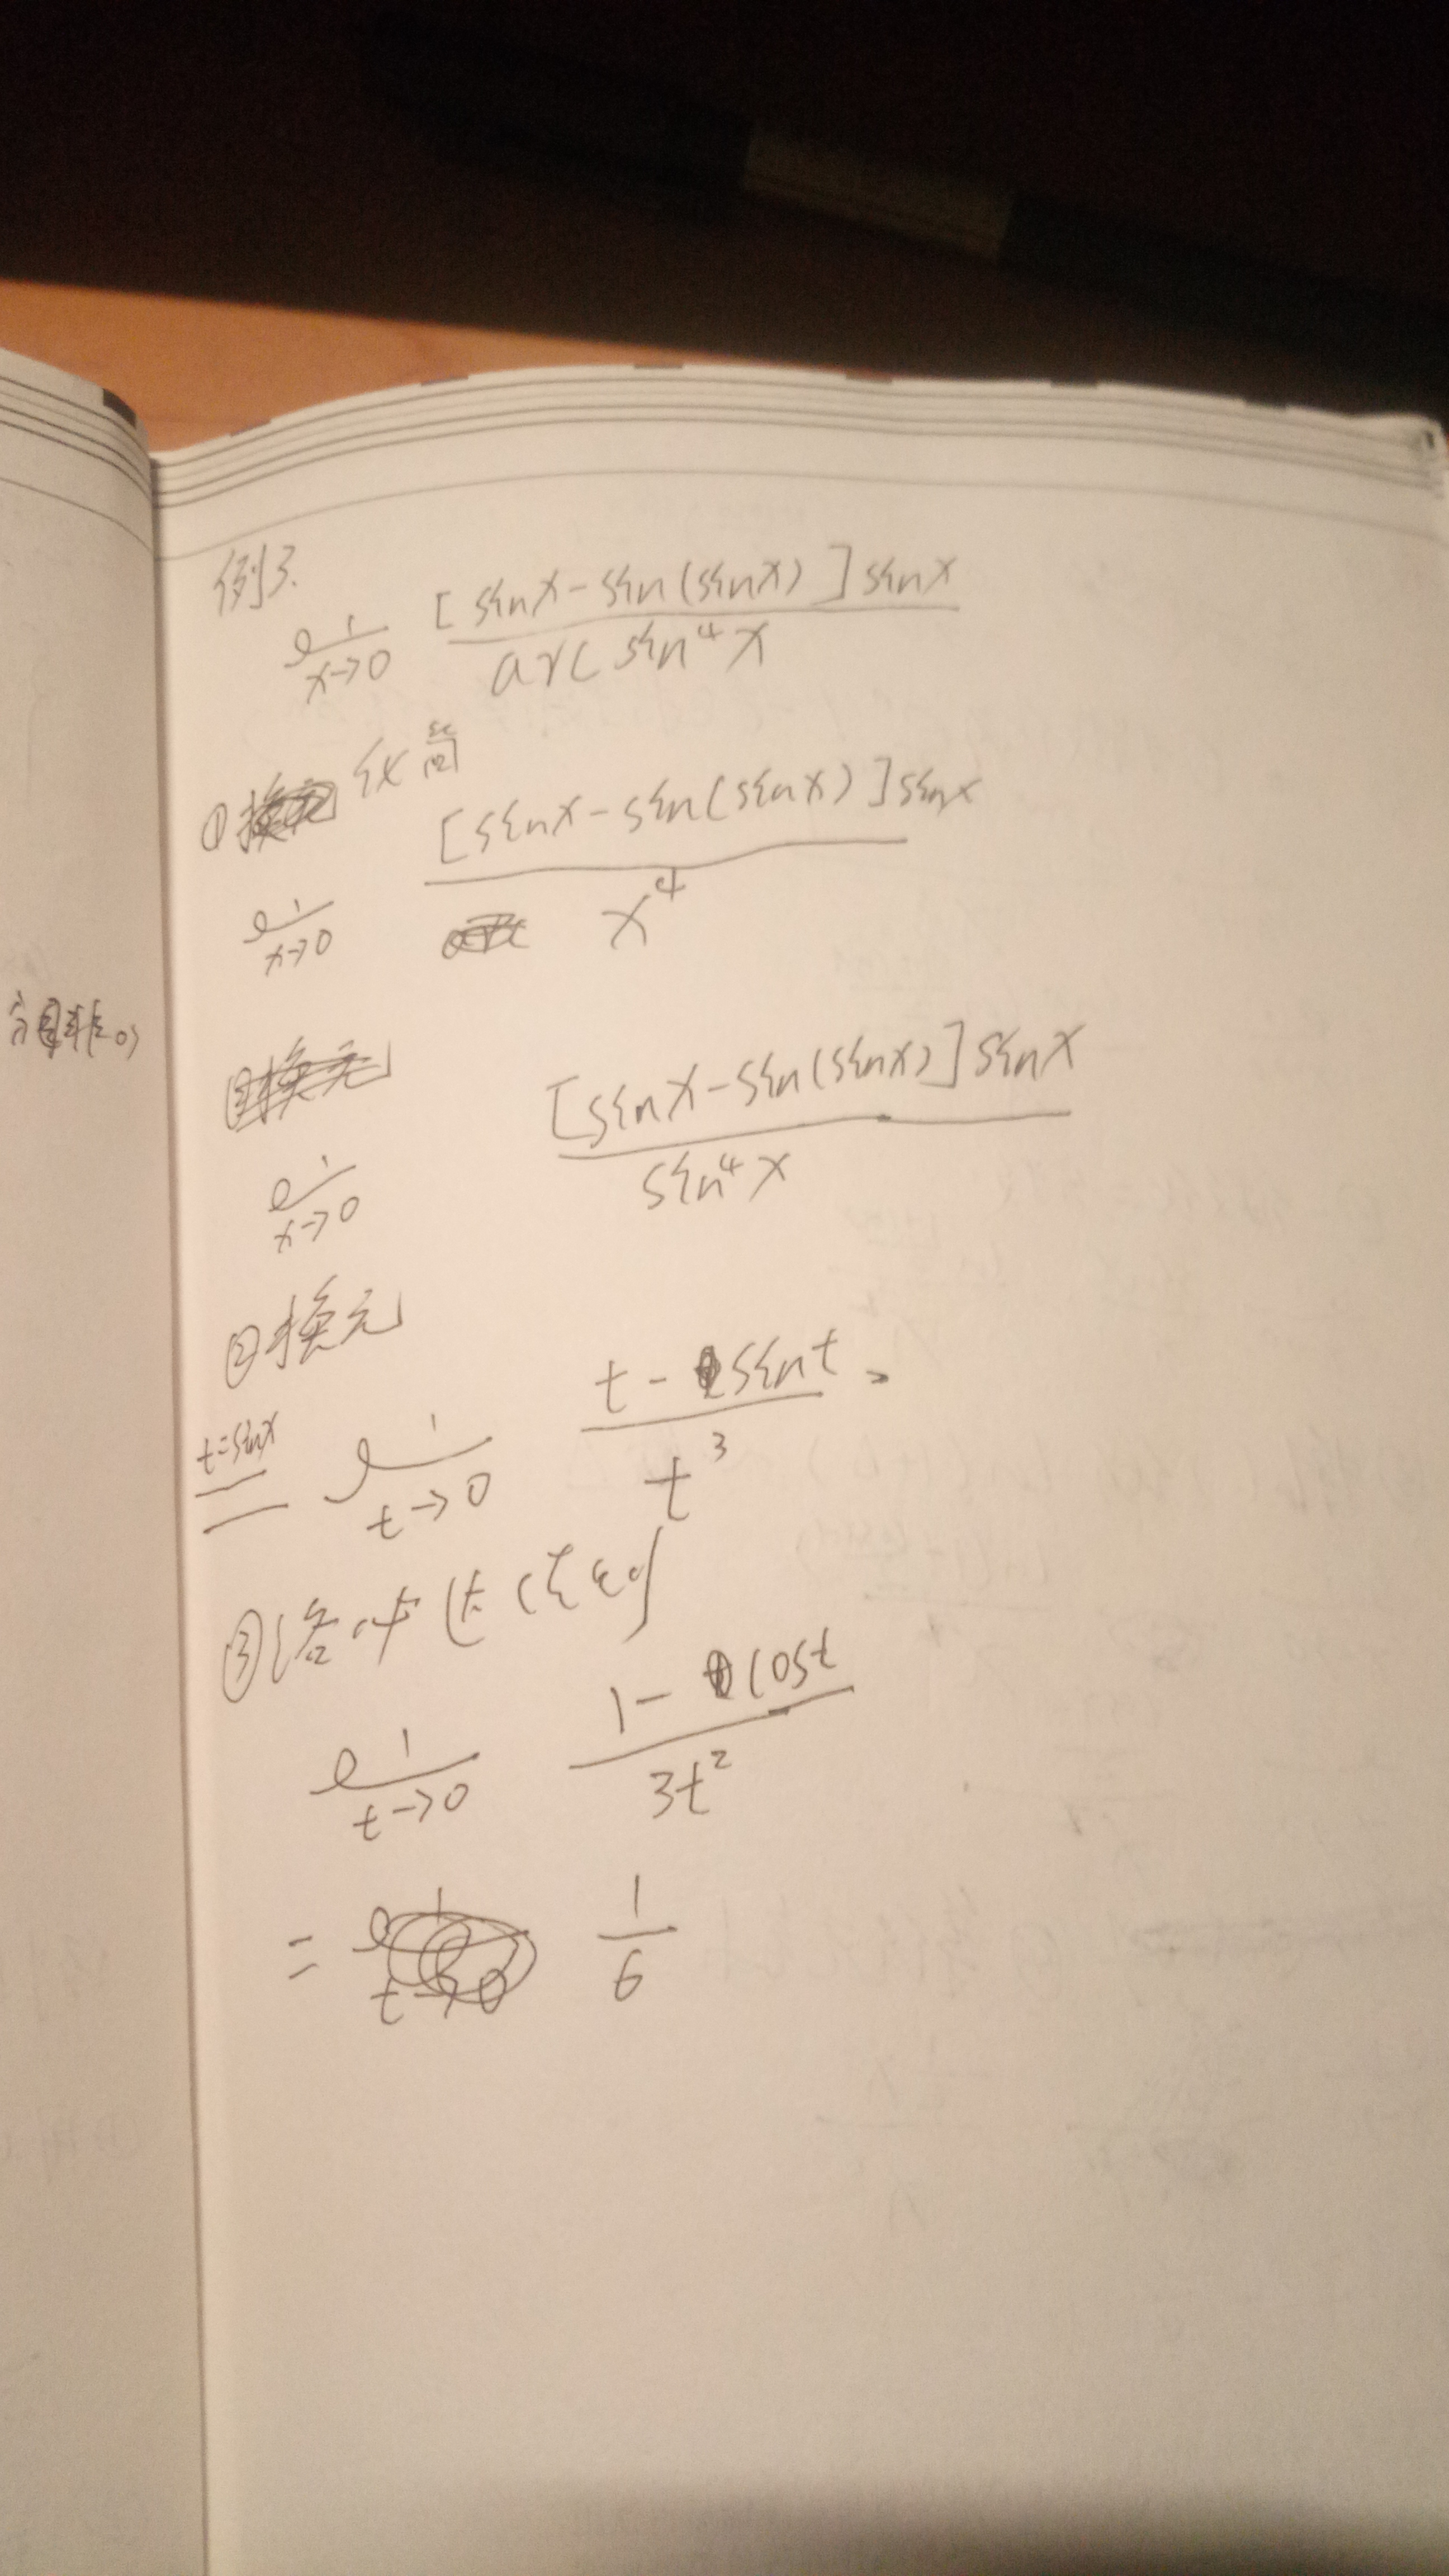 例3.
lim x→0 [sinx-sin(sinx)]sinx / arcsin⁴x
① 化简
lim x→0 [sinx-sin(sinx)]sinx / x⁴
lim x→0 [sinx-sin(sinx)]sinx / sin⁴x
②换元
t=sinx = lim t→0 t-sint / t³
③洛必达法则
lim t→0 1-cost / 3t²
= 1/6